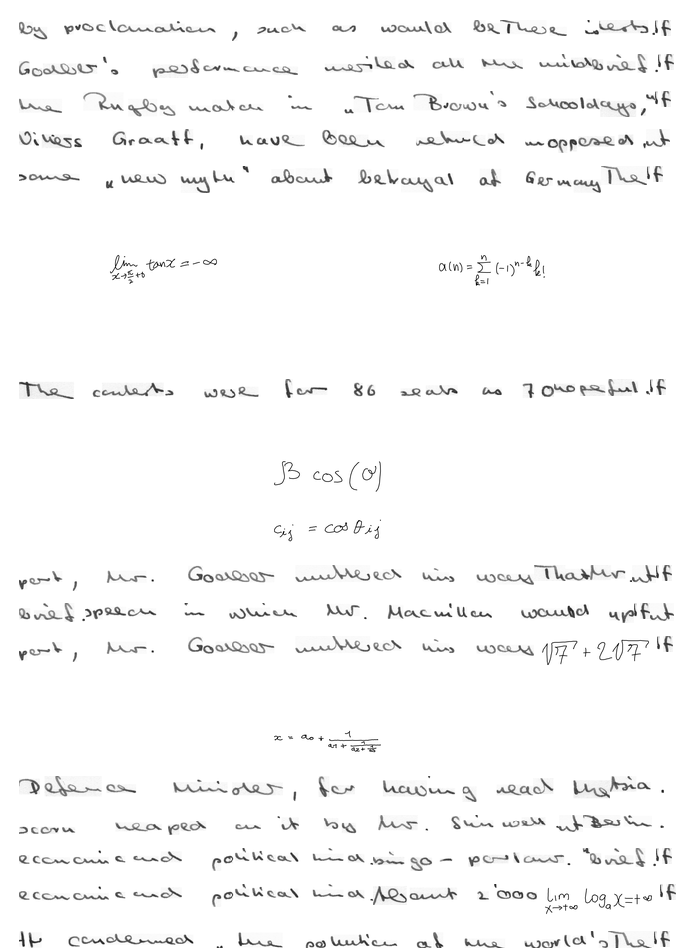 by proclamation, such as would be There is tests.If
Godber's performance merited all the mild brief.If
the Rugby match in "Tom Brown's Schooldays,"If
Vivers Graaff, have been returned unopposed, ut
some "new myth" about betrayal of Germany The If
\lim_{x \to \frac{\pi}{2}+0} \tan x = -\infty
a(n) = \sum_{k=1}^{n} (-1)^{n-k} k!
The contests were for 86 seats as 70 hopeful.If
\beta \cos(\sigma)
c_{ij} = \cos \theta_{ij}
part, Mr. Godber muttered his way That Mr. ut If
brief.speech in which Mr. Macmillan would up If ut
part, Mr. Godber muttered his way \sqrt{7} + 2\sqrt{7} If
x = a_0 + \frac{1}{a_1 + \frac{1}{a_2 + \frac{1}{a_3}}}
Defence Minister, for having read
scorn heaped on it by Mr. Shinwell ut Berlin.
economic and political kind. bingo - parlour. "brief.If
economic and political kind. About 2'000 \lim_{x \to +\infty} \log_a x = +\infty If
It condemned "the pollution of the world's The If